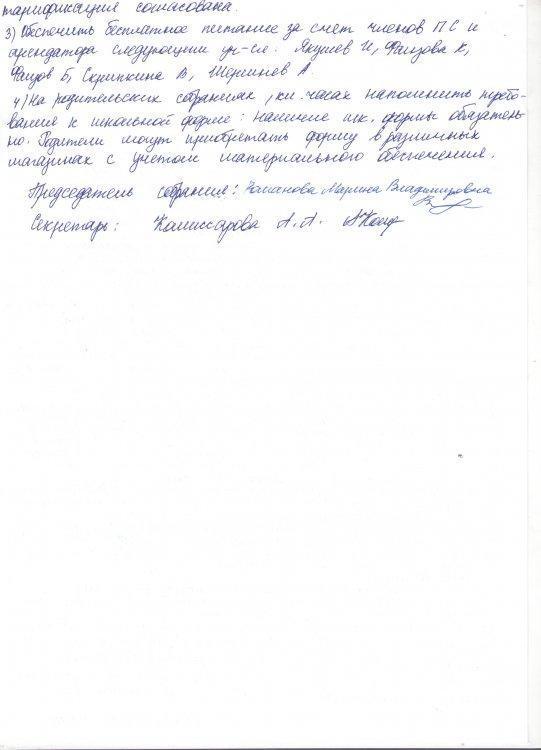 тарификация согласована.
3) Обеспечить бесплатное питание за счет членов ПС и
арендатора следующим уч-ся. Якушев И, Фаизова К,
Фаизов Б, Скрипкина В, Шершнев А.
4) На родительских собраниях, кл. часах напомнить требо-
вания к школьной форме: наличие шк. формы обязатель-
но. Родители могут приобретать форму в различных
магазинах с учетом материального обеспечения.
Председатель собрания: Марина Владимировна
Секретарь: Комиссарова А. А.